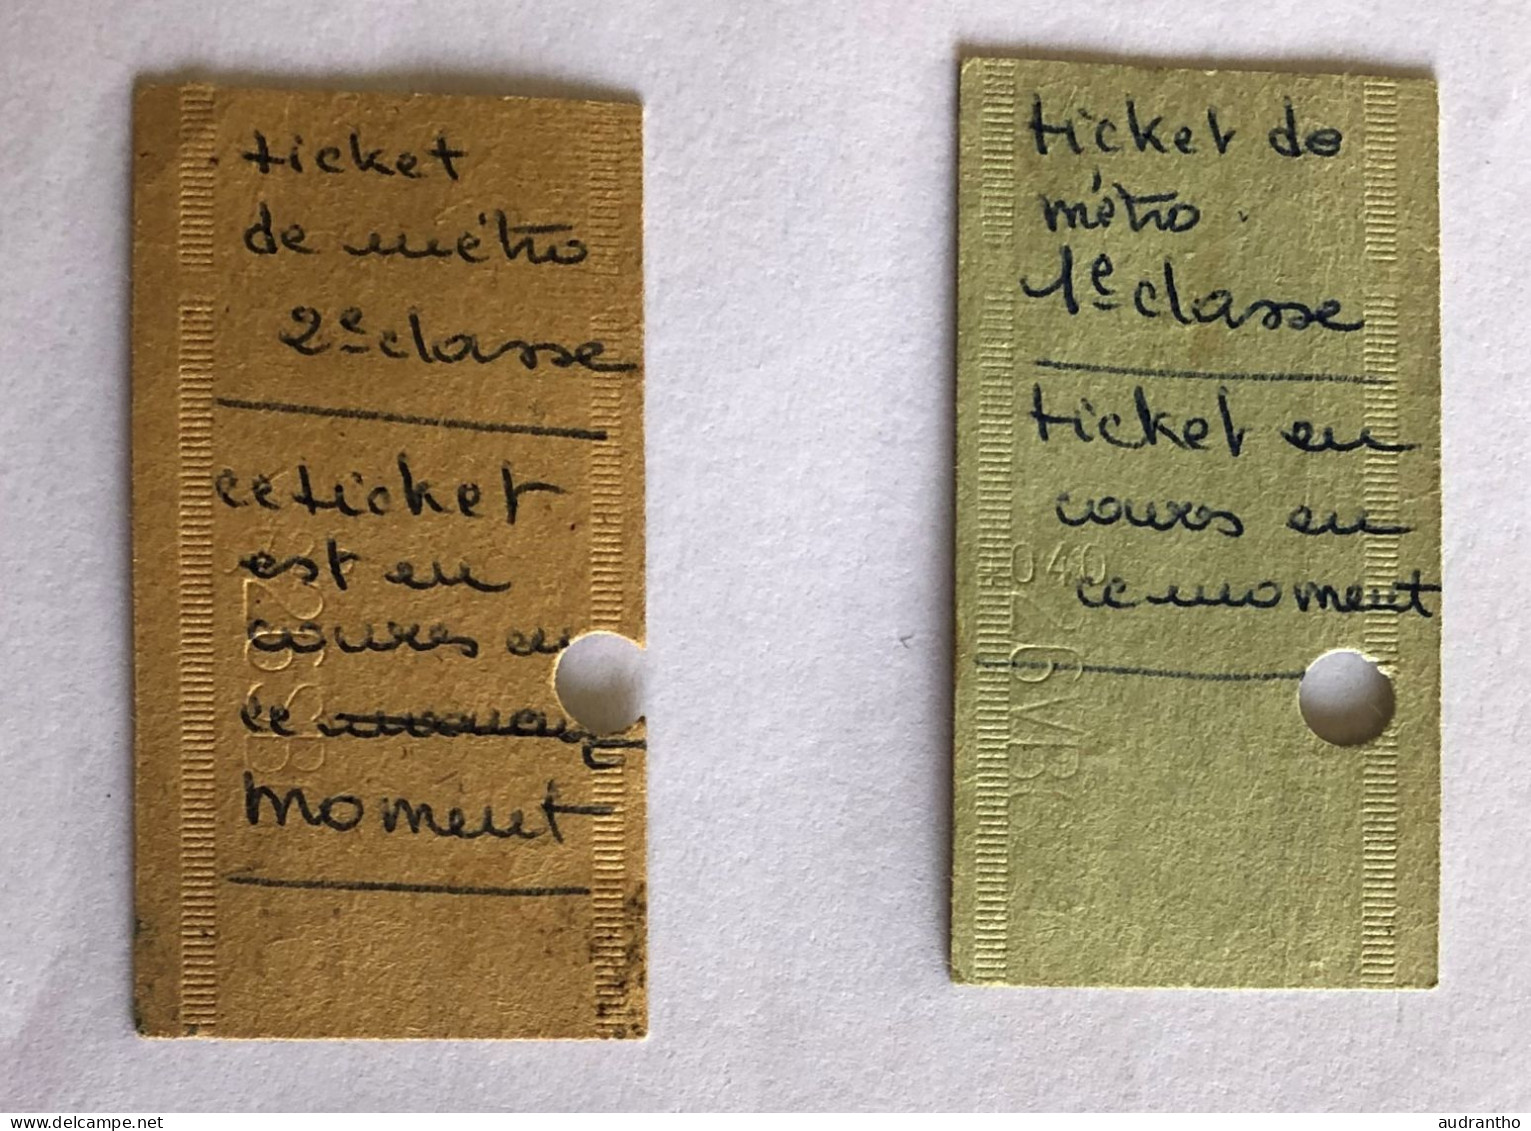 ticket
de métro
2e classe
ce ticket
est en
coures en
ce
moment
ticket de
métro.
1e classe
ticket en
cours en
ce moment
040
6VB
delcampe.net
audrantho